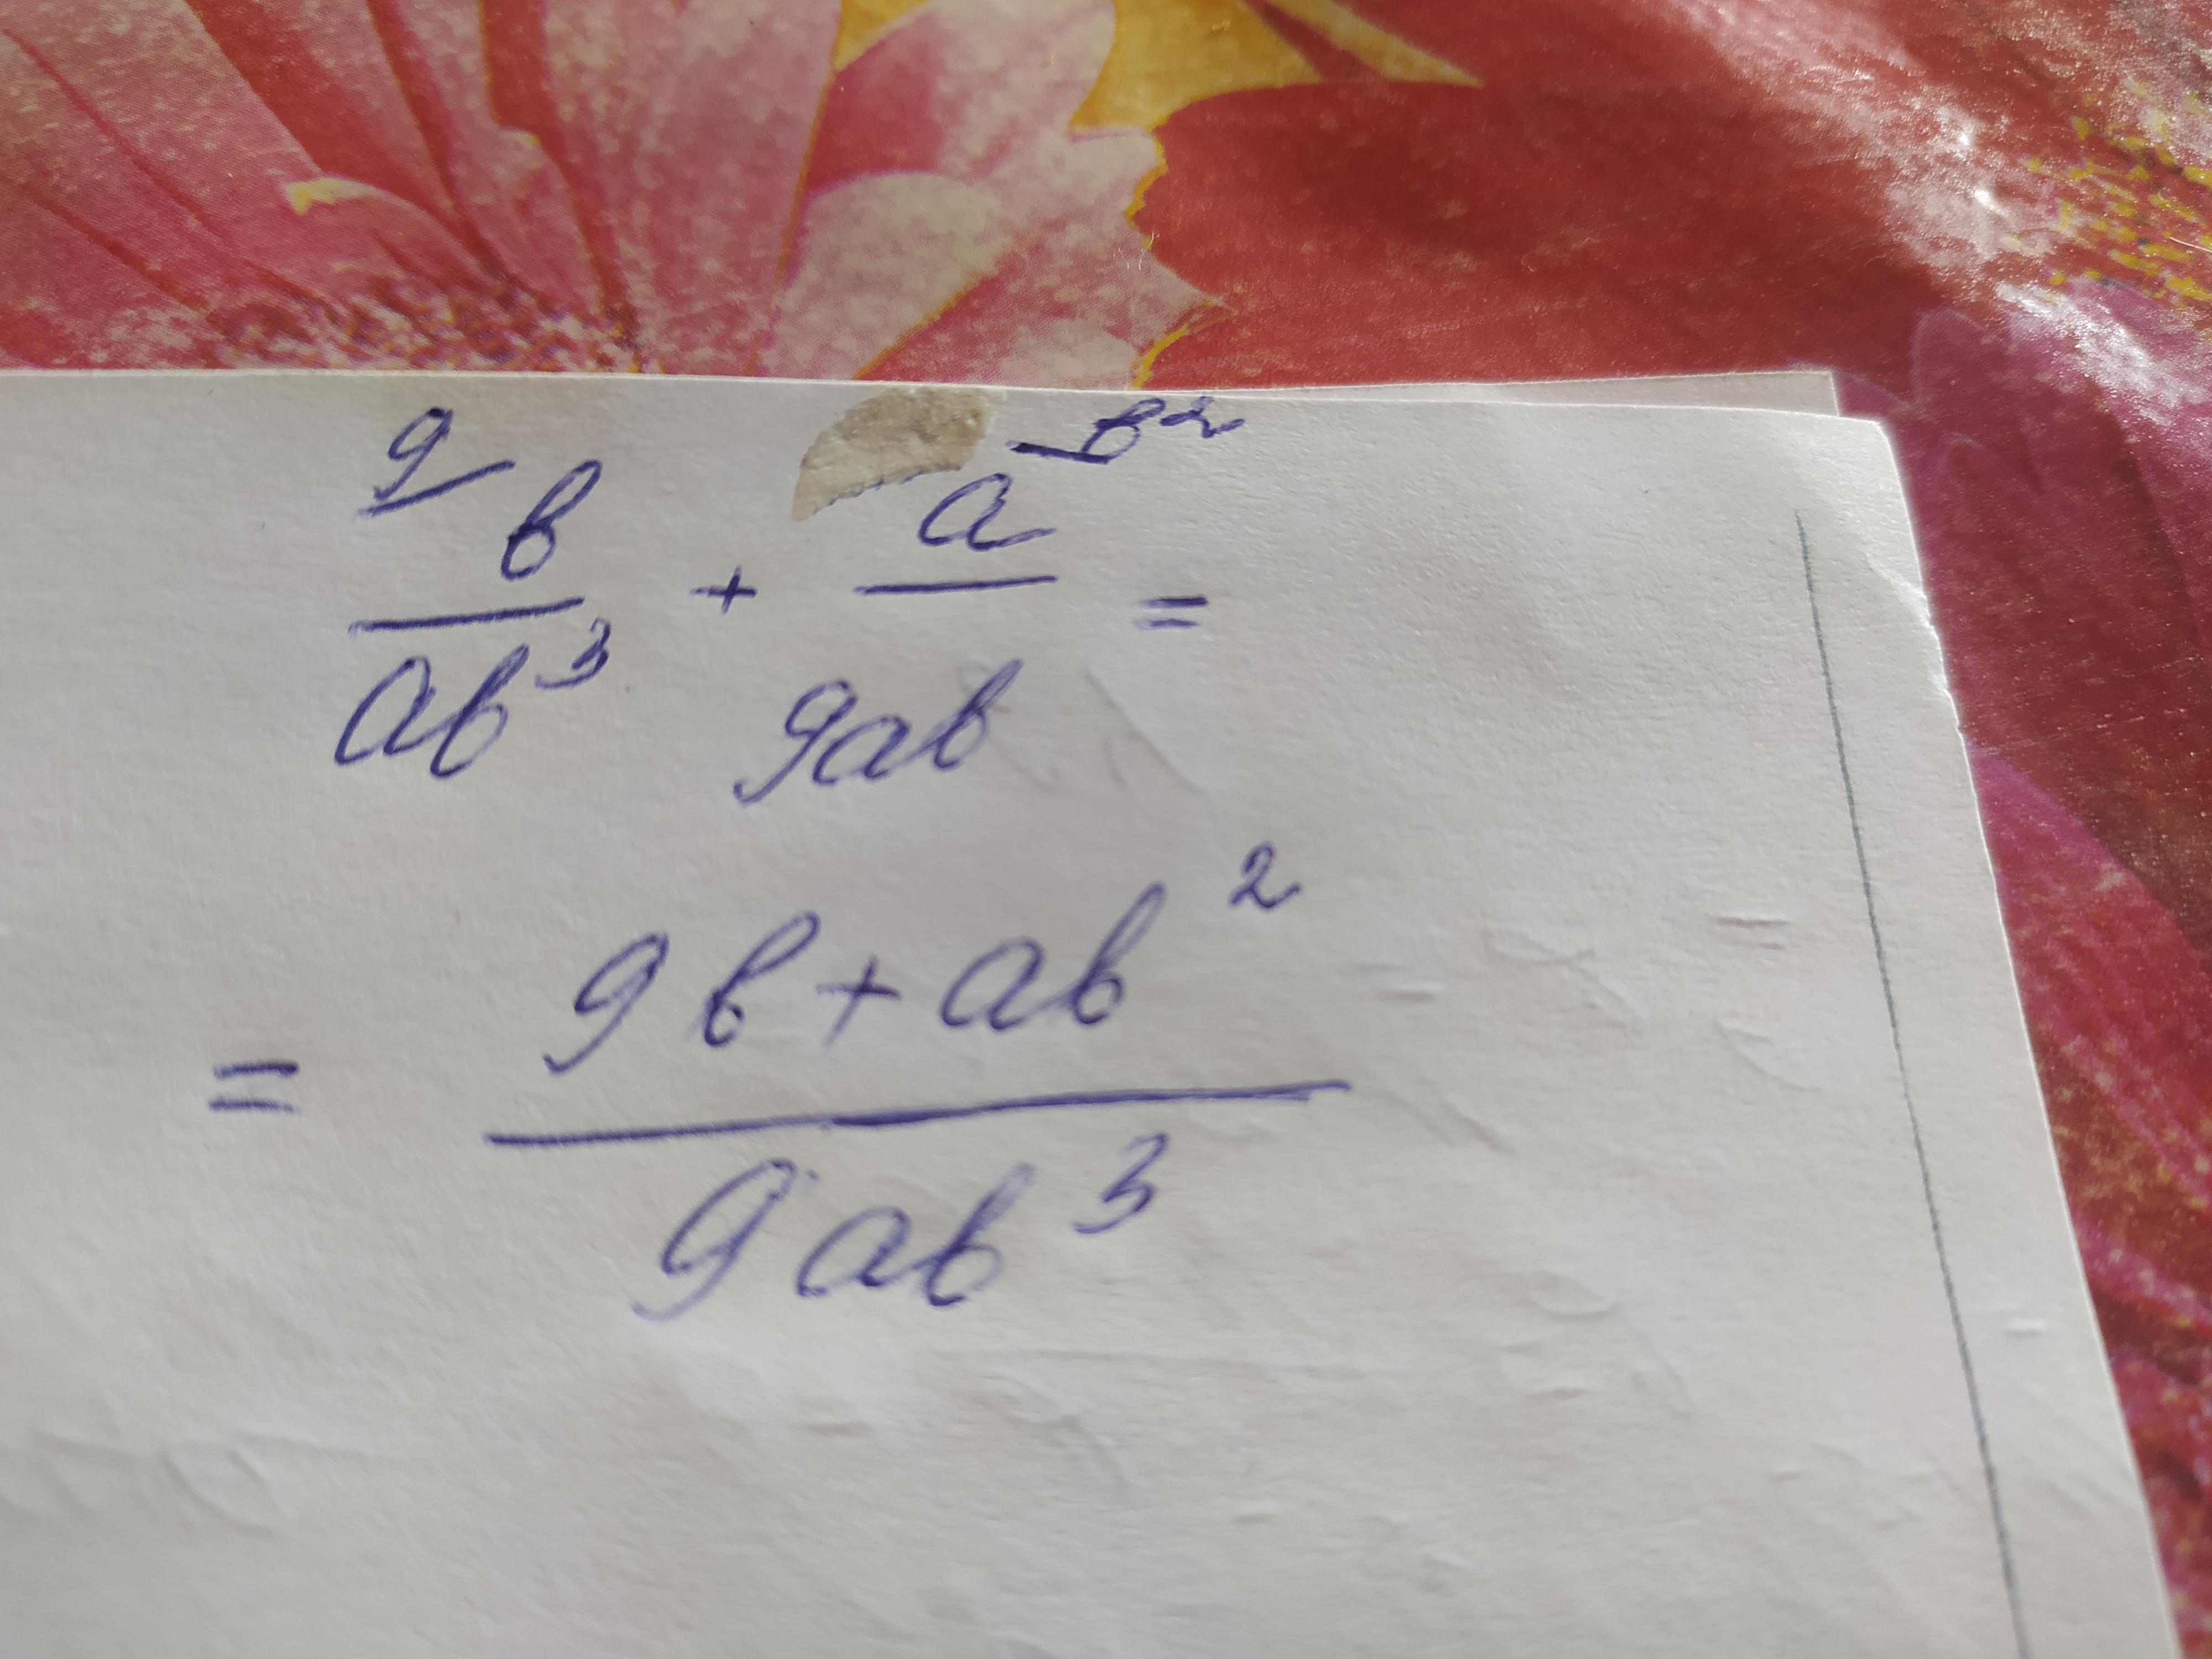 9 b a b²
── + ── =
ab³ 9ab
= 9b + ab²
9ab³